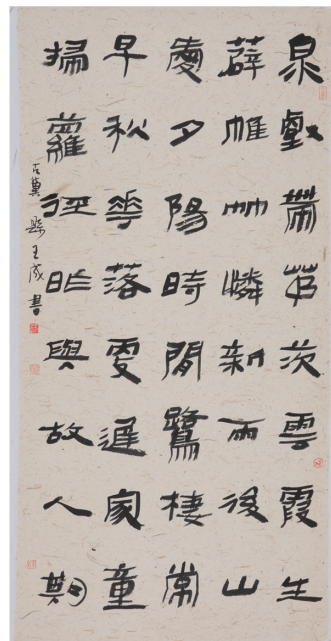 泉壑帶茅茨雲霞生
薜帷竹憐新雨後山
愛夕陽時間鷺棲常
早秋華落更遲家童
掃蘿徑昨與故人期
古冀 王成書